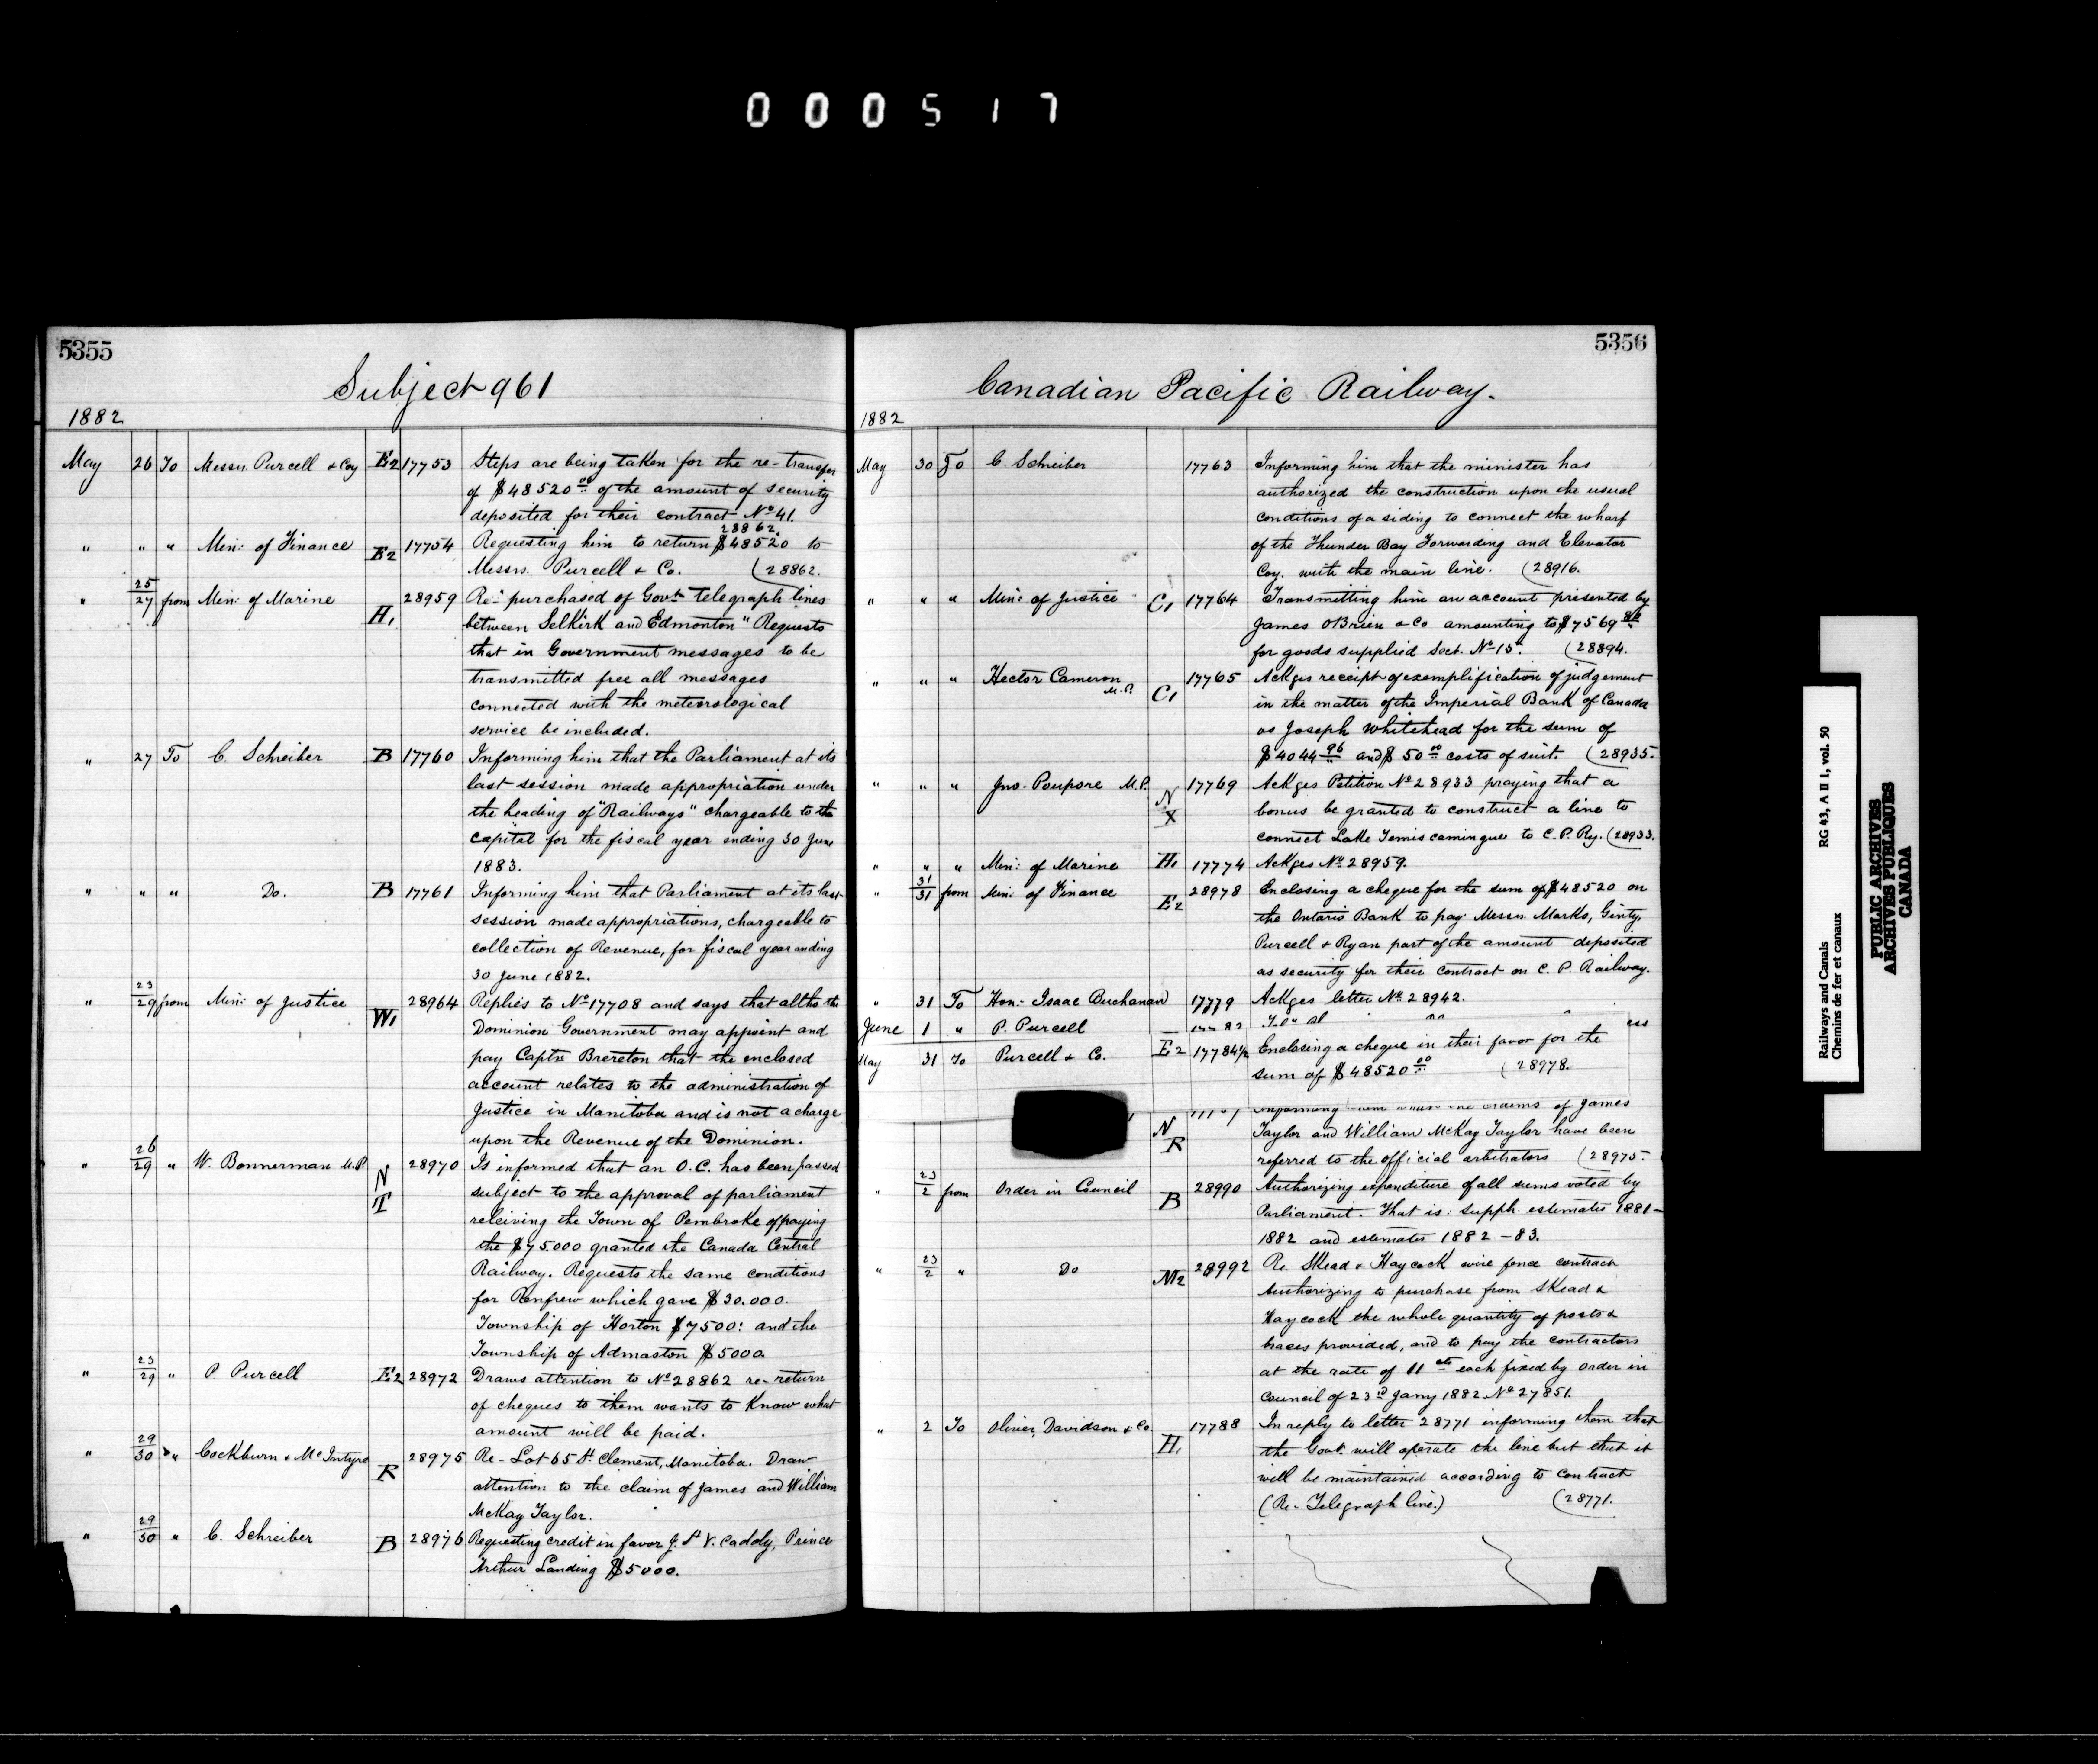 000517
5355
Subject 961
1882
May 26 To Messrs. Purcell & Coy E2 17753 Steps are being taken for the re-transfer
of $48520.00 of the amount of security
deposited for their contract No 41.
28862
" " " Min: of Finance E2 17754 Requesting him to return $48520 to
Messrs. Purcell & Co. (28862.
" 25/27 from Min: of Marine H1 28959 Re-" purchased of Govt. telegraph lines
between Selkirk and Edmonton" Requests
that in Government messages to be
transmitted free all messages
connected with the meteorological
service be included.
" 27 To C. Schreiber B 17760 Informing him that the Parliament at its
last session made appropriation under
the heading of "Railways" chargeable to the
Capital for the fiscal year ending 30 June
1883.
" " " Do. B 17761 Informing him that Parliament at its last
session made appropriations, chargeable to
collection of Revenue, for fiscal year ending
30 June 1882.
" 23/29 from Min: of Justice W1 28964 Replies to No 17708 and says that altho the
Dominion Government may appoint and
pay Captn Brereton that the enclosed
account relates to the administration of
Justice in Manitoba and is not a charge
upon the Revenue of the Dominion.
" 26/29 " W. Bonnerman M.P. N T 28970 Is informed that an O.C. has been passed
subject to the approval of parliament
releiving the Town of Pembroke of paying
the $75.000 granted the Canada Central
Railway. Requests the same conditions
for Renfrew which gave $30.000.
Township of Horton $7500: and the
Township of Admaston $5000
" 23/29 " P Purcell E2 28972 Draws attention to No 28862 re-return
of cheques to them wants to Know what
amount will be paid.
" 29/30 " Cockburn & McIntyre R 28975 Re-Lot 65 St. Clement, Manitoba. Draw
attention to the claim of James and William
McKay Taylor.
" 29/30 " C. Schreiber B 28976 Requesting credit in favor J. St V. Caddy, Prince
Arthur Landing $5000.
5356
Canadian Pacific Railway.
1882
May 30 To C. Schreiber 17763 Informing him that the minister has
authorized the construction upon the usual
conditions of a siding to connect the wharf
of the Thunder Bay Forwarding and Elevator
Coy. with the main line. (28916.
" " " Min: of Justice C1 17764 Transmitting him an account presented by
James OBrien & Co amounting to $7569
for goods supplied Sect. No 15. (28894.
" " " Hector Cameron M.P. C1 17765 Ackges receipt of exemplification of judgement
in the matter of the Imperial Bank of Canada
vs Joseph Whitehead for the sum of
$4044.96 and $50.00 costs of suit. (28935.
" " " Jno. Poupore M.P. N X 17769 Ackges Petition No 28933 praying that a
bonus be granted to construct a line to
connect Lake Temiscamingue to C.P. Ry. (28933.
" " " Min: of Marine H1 17774 Ackges No 28959.
" 31/31 from Min: of Finance E2 28978 Enclosing a cheque for the sum of $48520 on
the Ontario Bank to pay Messrs. Marks, Ginty,
Purcell & Ryan part of the amount deposited
as security for their contract on C.P. Railway.
" 31 To Hon. Isaac Buchanan 17779 Ackges letter No 28942.
June 1 " P. Purcell
May 31 To Purcell & Co. E2 17784½ Enclosing a cheque in their favor for the
sum of $48520.00 (28978.
N R Informing them that the claims of James
Taylor and William McKay Taylor have been
referred to the official arbitrators (28975.
" 23/2 from Order in Council B 28990 Authorizing expenditure of all sums voted by
Parliament. That is: supph. estimates 1881-
1882 and estimates 1882-83.
" 23/2 " Do M2 28992 Re. Skead & Haycock wire fence contract
Authorizing to purchase from Skead &
Haycock the whole quantity of posts &
braces provided, and to pay the contractors
at the rate of 11 cts each fixed by Order in
Council of 23rd Jany 1882 No 27851.
" 2 To Oliver, Davidson & Co. H1 17788 In reply to letter 28771 informing them that
the Govt. will operate the line but that it
will be maintained according to contract
(Re-Telegraph line.) (28771.
Railways and Canals RG 43, A II 1, vol. 50
Chemins de fer et canaux
PUBLIC ARCHIVES
ARCHIVES PUBLIQUES
CANADA